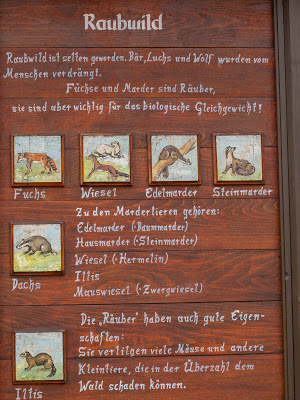 Raubwild
Raubwild ist selten geworden. Bär, Luchs und Wolf wurden vom
Menschen verdrängt.
Füchse und Marder sind Räuber,
sie sind aber wichtig für das biologische Gleichgewicht!
Fuchs Wiesel Edelmarder Steinmarder
Zu den Mardertieren gehören:
Edelmarder (=Baummarder)
Hausmarder (=Steinmarder)
Wiesel (=Hermelin)
Iltis
Mauswiesel (=Zwergwiesel)
Dachs
Die „Räuber" haben auch gute Eigen-
schaften:
Sie vertilgen viele Mäuse und andere
Kleintiere, die in der Überzahl dem
Wald schaden können.
Iltis